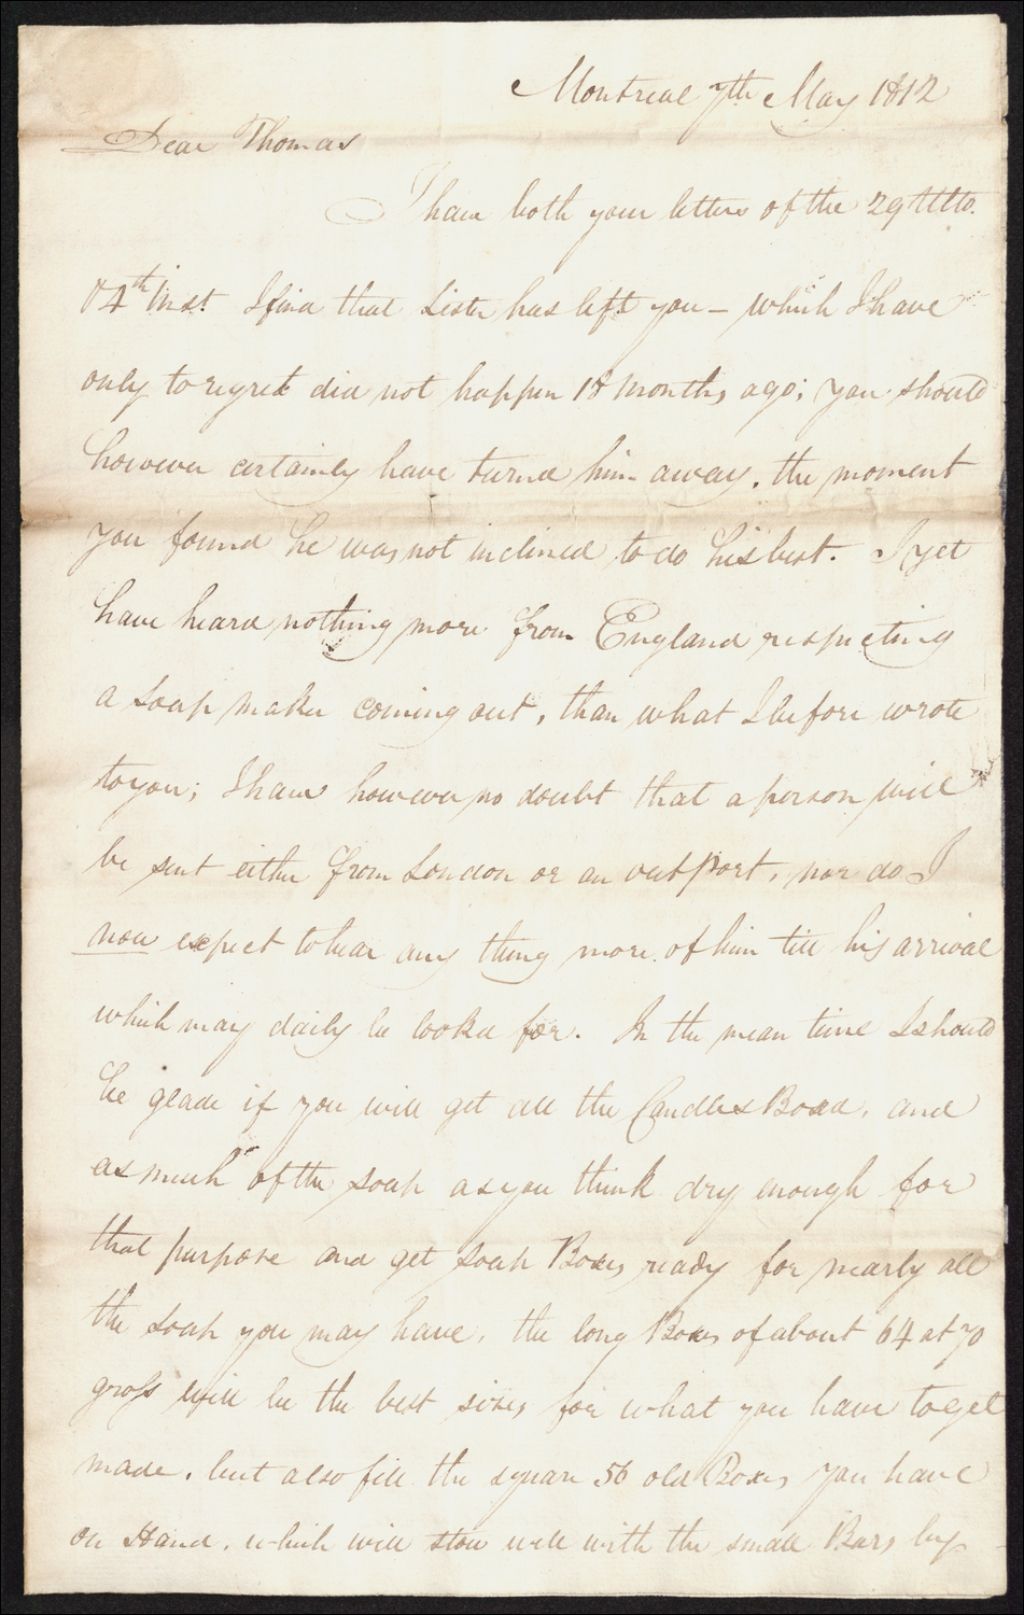 Montreal 7th May 1812
Dear Thomas
I have both your letters of the 29 Ulto.
& 4th Inst. I find that Lister has left you – which I have
only to regret did not happen 18 months ago; you should
however certainly have turnd him away, the moment
you found he was not inclined to do his best. I yet
have heard nothing more from England respecting
a Soap maker coming out, than what I before wrote
to you; I have however no doubt that a person will
be sent either from London or an outport, nor do I
now expect to hear any thing more of him till his arrival
which may daily be lookd for. In the mean time I should
be glade if you will get all the Candles Boxd, and
as much of the soap as you think dry enough for
that purpose and get soap Boxes ready for nearly all
the soap you may have, the long Boxes of about 64 at 70
gross will be the best sizes for what you have to get
made, but also fill the square 56 old Boxes you have
on Hand, which will stow well with the small Bars by